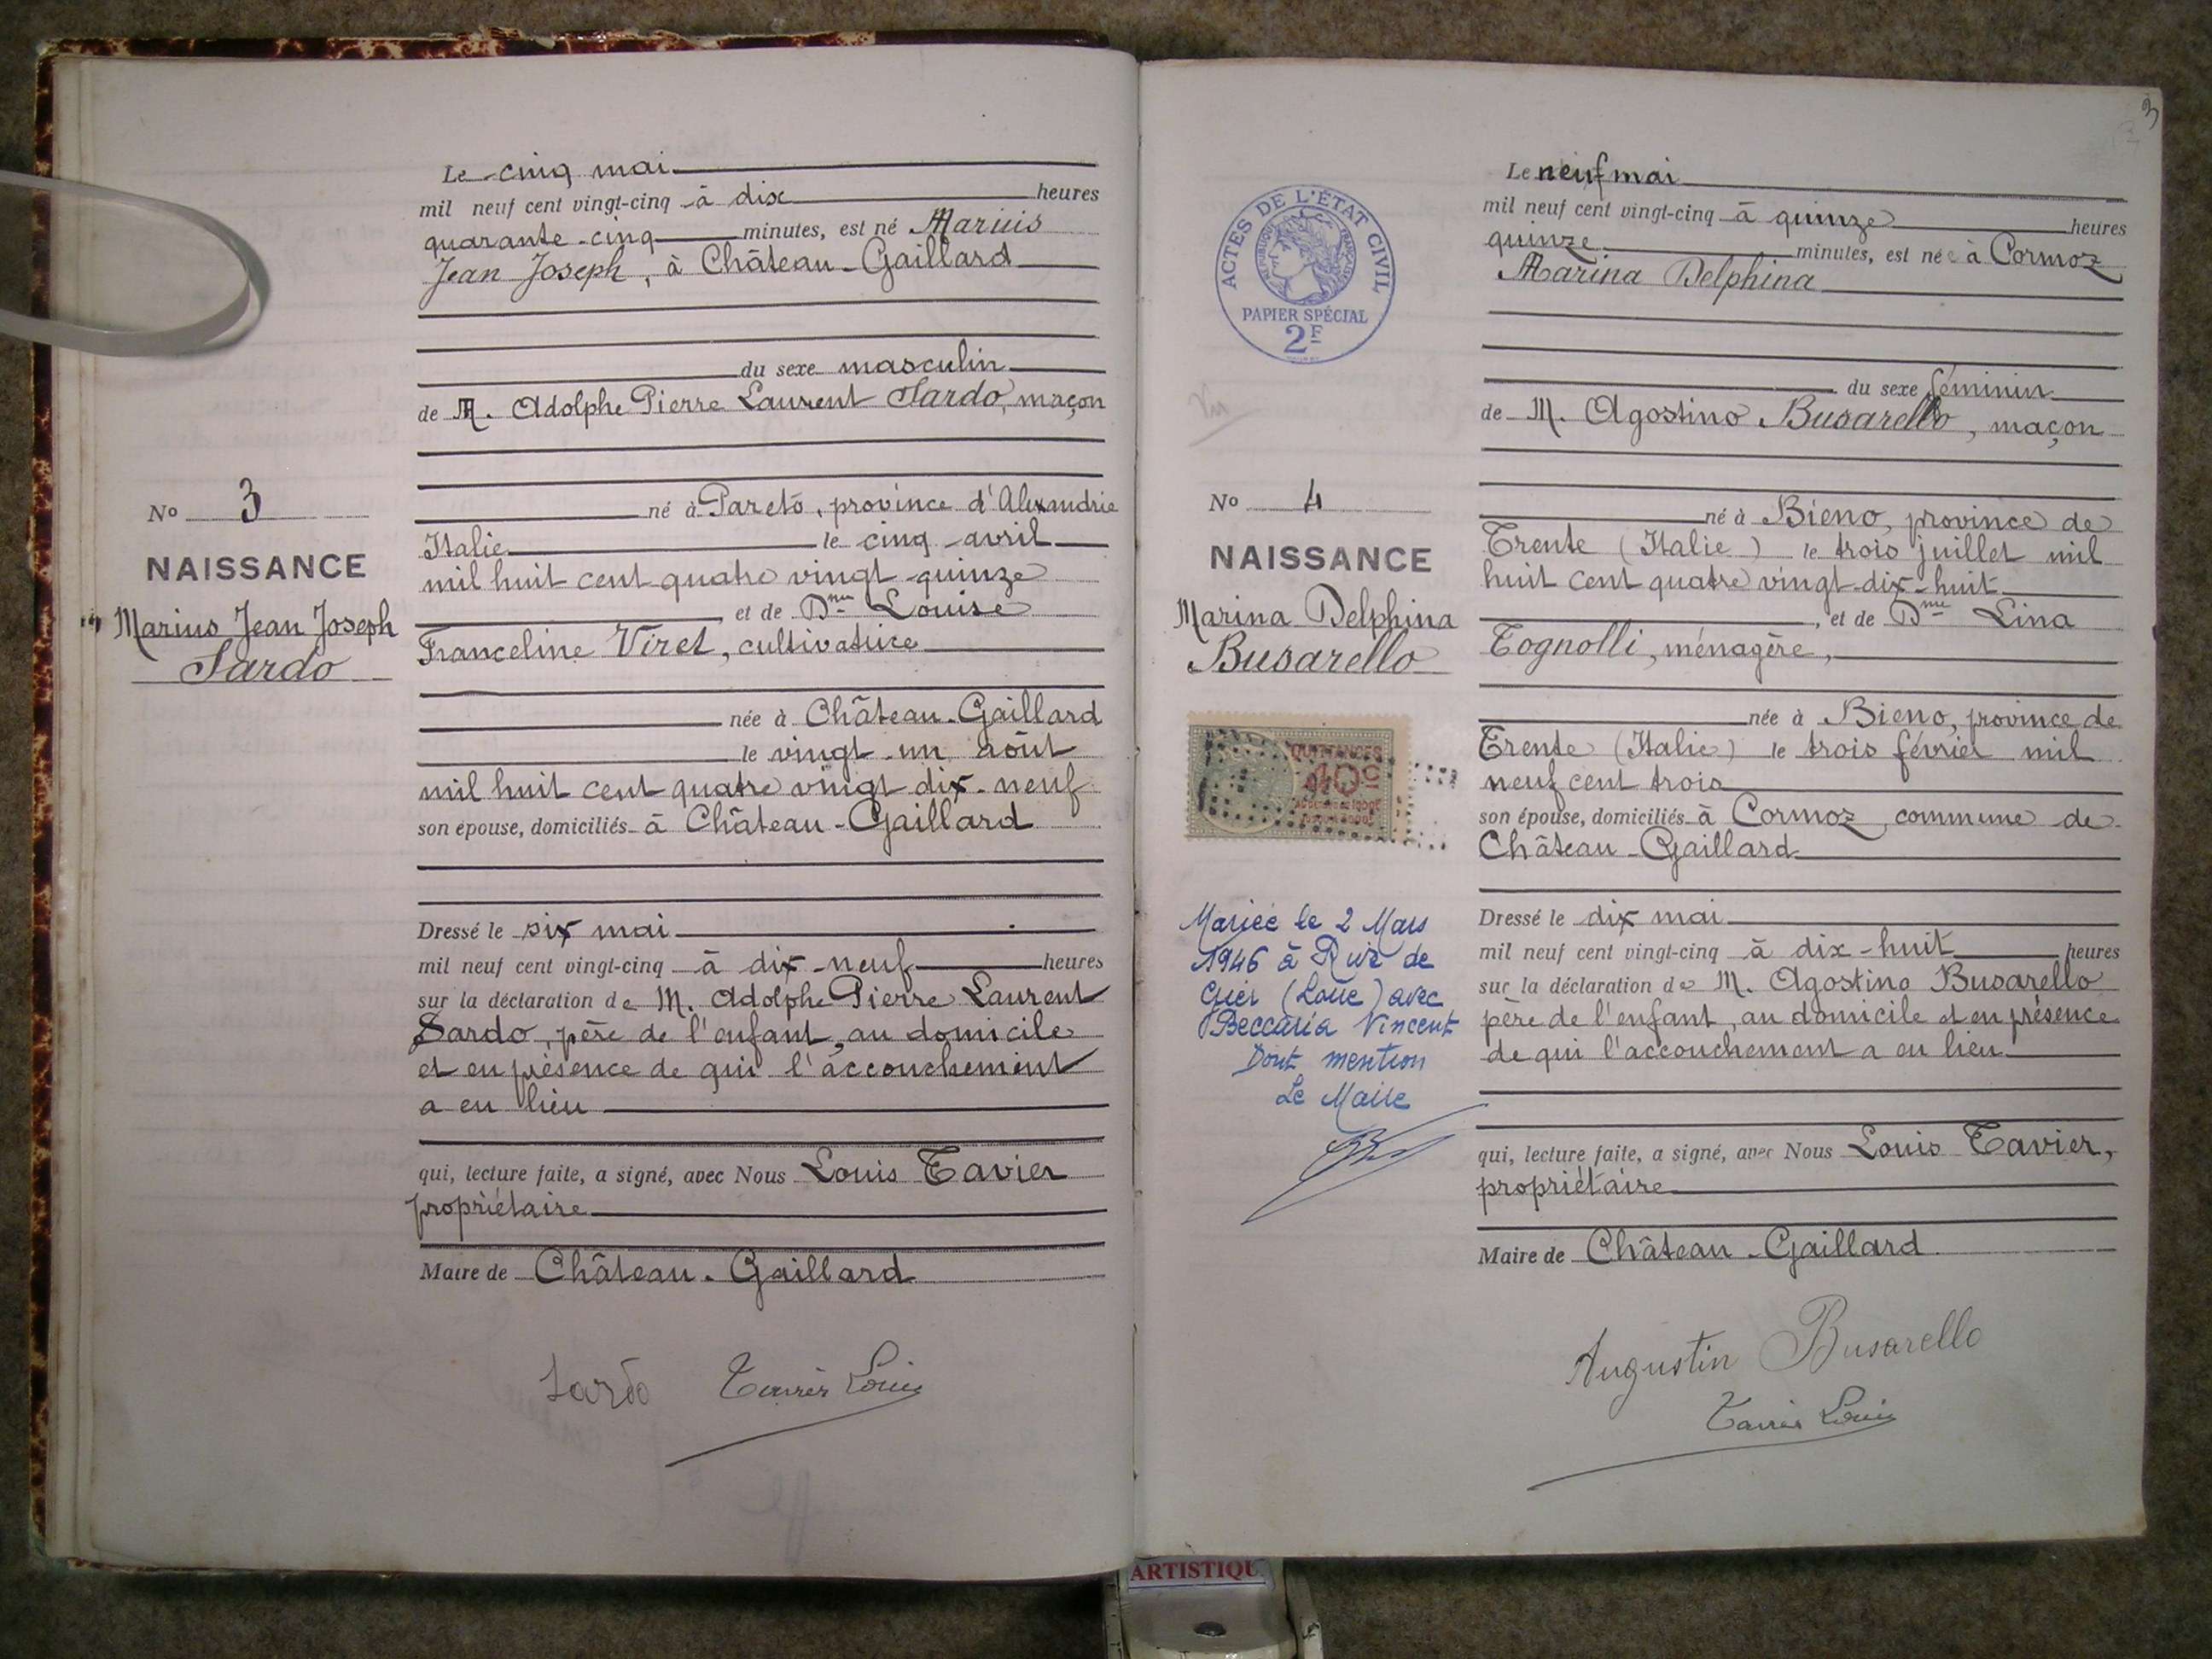 Le cinq mai
mil neuf cent vingt-cinq à dix heures
quarante-cinq minutes, est né Marius
Jean Joseph, à Château-Gaillard
du sexe masculin
de M. Adolphe Pierre Laurent Sardo, maçon
né à Pareto, province d'Alexandrie
Italie le cinq avril
mil huit cent quatre vingt quinze
et de Dme Louise
Franceline Viret, cultivatrice
née à Château-Gaillard
le vingt-un août
mil huit cent quatre vingt dix-neuf
son épouse, domiciliés à Château-Gaillard
Dressé le six mai
mil neuf cent vingt-cinq à dix-neuf heures
sur la déclaration de M. Adolphe Pierre Laurent
Sardo, père de l'enfant, au domicile
et en présence de qui l'accouchement
a eu lieu
qui, lecture faite, a signé, avec Nous Louis Tavier
propriétaire
Maire de Château-Gaillard
Sardo Tavier Louis
No 3
NAISSANCE
Marius Jean Joseph
Sardo
3
ACTES DE L'ÉTAT CIVIL
RÉPUBLIQUE FRANÇAISE
PAPIER SPÉCIAL
2F
Vu
No 4
NAISSANCE
Marina Delphina
Busarello
QUITTANCES
40c
Mariée le 2 Mars
1946 à Rive de
Gier (Loire) avec
Beccaria Vincent
Dont mention
Le Maire
Le neuf mai
mil neuf cent vingt-cinq à quinze heures
quinze minutes, est née à Cormoz
Marina Delphina
du sexe féminin
de M. Agostino Busarello, maçon
né à Bieno, province de
Trente (Italie) le trois juillet mil
huit cent quatre vingt-dix-huit
, et de Dme Lina
Tognolli, ménagère,
née à Bieno, province de
Trente (Italie) le trois février mil
neuf cent trois
son épouse, domiciliés à Cormoz, commune de
Château-Gaillard
Dressé le dix mai
mil neuf cent vingt-cinq à dix-huit heures
sur la déclaration de M. Agostino Busarello
père de l'enfant, au domicile et en présence
de qui l'accouchement a eu lieu
qui, lecture faite, a signé, avec Nous Louis Tavier,
propriétaire
Maire de Château-Gaillard
Augustin Busarello
Tavier Louis
ARTISTIQU